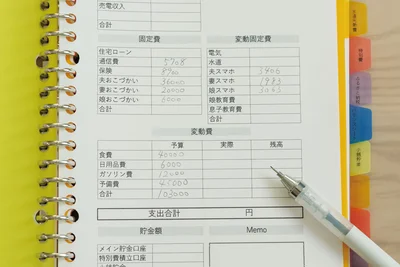 売電収入
合計
固定費 変動固定費
住宅ローン 電気
通信費 5708 水道
保険 8900 夫スマホ 3906
夫おこづかい 36000 妻スマホ 1985
妻おこづかい 20000 娘スマホ 3065
娘おこづかい 6000 娘教育費
合計 息子教育費
合計
変動費
予算 実際 残高
食費 40000
日用品費 6000
ガソリン費 12000
予備費 45000
合計 103000
支出合計 円
貯金額 Memo
メイン貯金口座
特別費積立口座